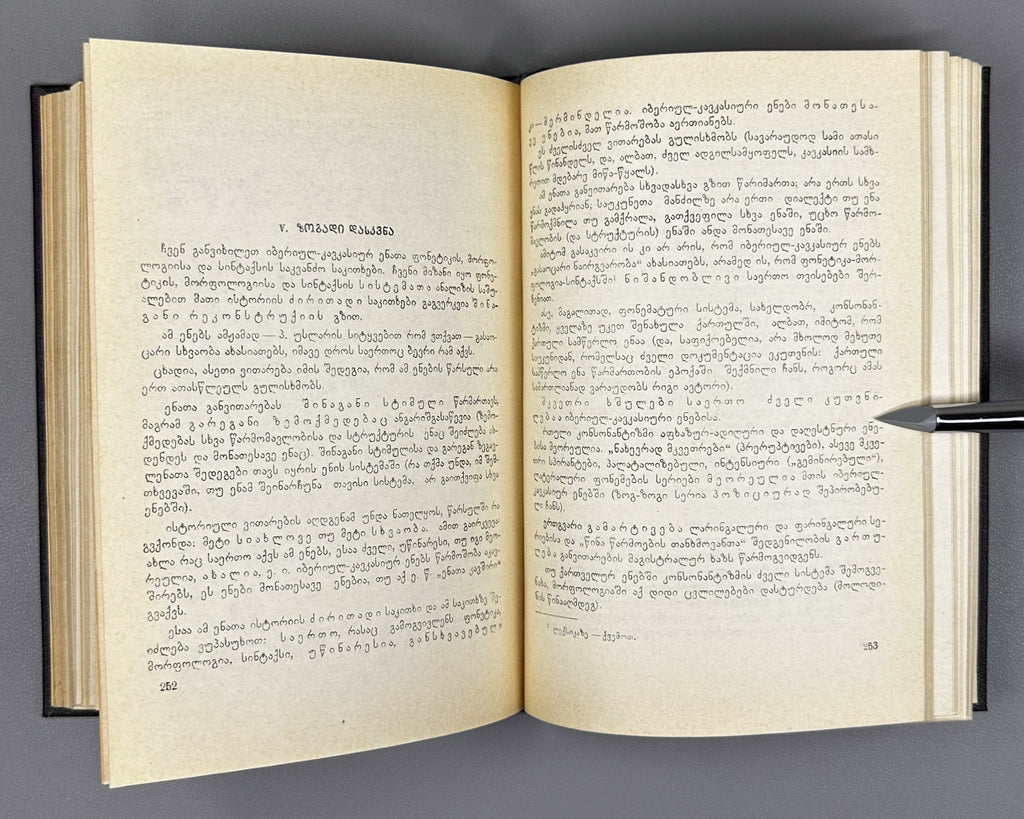 V. ᲖᲝᲒᲐᲓᲘ ᲓᲐᲡᲙᲕᲜᲐ
ჩვენ განვიხილეთ იბერიულ-კავკასიურ ენათა ფონეტიკის, მორფო-
ლოგიისა და სინტაქსის საკვანძო საკითხები. ჩვენი მიზანი იყო ფონე-
ტიკის, მორფოლოგიისა და სინტაქსის ს ი ს ტ ე მ ა თ ა ანალიზის საშუ-
ალებით მათი ისტორიის ძ ი რ ი თ ა დ ი საკითხები გაგვერკვია შ ი ნ ა-
გ ა ნ ი რ ე კ ო ნ ს ტ რ უ ქ ც ი ი ს გზით.
ამ ენებს ამჟამად — პ. უსლარის სიტყვებით რომ ვთქვათ — გასაო-
ცარი სხვაობა ახასიათებს, იმავე დროს საერთოც ბევრი რამ აქვს.
ცხადია, ასეთი ვითარება იმის შედეგია, რომ ამ ენების წარსული არა
ერთ ათასწლეულს გულისხმობს.
ენათა განვითარებას შ ი ნ ა გ ა ნ ი ს ტ ი მ უ ლ ი წარმართავს,
მაგრამ გ ა რ ე გ ა ნ ი ზ ე მ ო ქ მ ე დ ე ბ ა ც ანგარიშგასაწევია (ზემო-
ქმედებას სხვა წარმომავლობისა და სტრუქტურის ენაც შეიძლება ახ-
დენდეს და მონათესავე ენაც). შინაგანი სტიმულისა და გარეგან ზეგავ-
ლენათა შედეგები თავს იყრის ენის სისტემაში (რა თქმა უნდა, იმ შემ-
თხვევაში, თუ ენამ შეინარჩუნა თავისი სისტემა, არ გაითქვიფა სხვა
ენებში).
ისტორიული ვითარების აღდგენამ უნდა ნათელყოს, წარსულში რა
გვქონდა: მეტი ს ი ა ხ ლ ო ვ ე თუ მეტი ს ხ ვ ა ო ბ ა. ამით გაირკვევა:
ახლა რაც საერთო აქვს ამ ენებს, ესაა ძველი, უწინარესი, თუ იგი მეო-
რეულია, ა ხ ა ლ ი ა, ე. ი. იბერიულ-კავკასიურ ენებს წარმოშობა აკავ-
შირებს, ეს ენები მონათესავე ენებია, თუ აქ ე. წ. „ენათა კავშირი“
გვაქვს.
ესაა ამ ენათა ისტორიის ძ ი რ ი თ ა დ ი საკითხი და ამ საკითხზე შე-
იძლება ვუპასუხოთ: ს ა ე რ თ ო, რასაც გამოგვივლენს ფონეტიკა,
მორფოლოგია, სინტაქსი, უ წ ი ნ ა რ ე ს ი ა, გ ა ნ ს ხ ვ ა ვ ე ბ უ ლ ი
252
კი — მ ე რ მ ი ნ დ ე ლ ი ა. იბერიულ-კავკასიური ენები მ ო ნ ა თ ე ს ა-
ვ ე ე ნ ე ბ ი ა, მათ წარმოშობა აერთიანებს.
ეს ძველისძველ ვითარებას გულისხმობს (სავარაუდოდ სამი ათასი
წლის წინანდელს, და, ალბათ, ძველ ადგილსამყოფელს, კავკასიის სამხ-
რეთით მდებარე მიწა-წყალს).
ამ ენათა განვითარება სხვადასხვა გზით წარიმართა; არა ერთს სხვა
ენას გადაჰყრიან; საუკუნეთა მანძილზე არა ერთი დიალექტი თუ ენა
წარმოქმნილა თუ გამქრალა, გათქვეფილა სხვა ენაში, უცხო წარმო-
მავლობის (და სტრუქტურის) ენაში ანდა მონათესავე ენაში.
ამიტომ გასაკვირი ის კი არ არის, რომ იბერიულ-კავკასიურ ენებს
„გასაოცარი ნაირგვარობა“ ახასიათებს, არამედ ის, რომ ფონეტიკა-მორ-
ფოლოგია-სინტაქსში¹ ნ ი შ ა ნ დ ო ბ ლ ი ვ ი საერთო თვისებები შერ-
ჩენიათ.
ასე, მაგალითად, ფონემატური სისტემა, სახელდობრ, კონსონან-
ტიზმი, ყველაზე უკეთ შენახულა ქართულში, ალბათ, იმიტომ, რომ
ქართული სამწერლო ენაა (და, საფიქრებელია, არა მხოლოდ მეხუთე
საუკუნიდან, რომელსაც ძველი დოკუმენტაცია ეკუთვნის: ქართული
სამწერლო ენა წარმართობის ეპოქაში შექმნილი ჩანს, როგორც ამას
სამართლიანად ვარაუდობს რიგი ავტორი).
მ კ ვ ე თ რ ი ხ შ უ ლ ე ბ ი ს ა ე რ თ ო ძ ვ ე ლ ი კ უ თ ვ ნ ი-
ლ ე ბ ა ა იბერიულ-კავკასიური ენებისა.
რთული კონსონანტიზმი აფხაზურ-ადიღური და დაღესტნური ენე-
ბისა მეორეულია. „ნახევრად მკვეთრები“ (პრერუპტივები), ასევე მკვე-
თრი სპირანტები, პალატალიზებული, ინტენსიური („გემინირებული“),
ლატერალური ფონემების სერიები მ ე ო რ ე უ ლ ი ა მთის იბერიულ-
კავკასიურ ენებში (ზოგ-ზოგი სერია პ ო ზ ი ც ი უ რ ა დ შეპირობებუ-
ლი ჩანს).
ერთგვარი გ ა მ ა რ ტ ი ვ ე ბ ა ლარინგალური და ფარინგალური სე-
რიებისა და „წინა წარმოების თანხმოვანთა“ შედგენილობის გ ა რ თ უ-
ლ ე ბ ა განვითარების მაგისტრალურ ხაზს წარმოგვიდგენს.
თუ ქართველურ ენებში კონსონანტიზმის ძველი სისტემა შემოგვე-
ნახა, მორფოლოგიაში აქ დიდი ცვლილებები დასტურდება (მოლოდი-
ნის წინააღმდეგ).
¹ ლექსიკაზე — ქვემოთ.
253